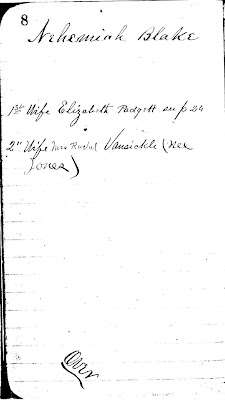 8
Nehemiah Blake
1st Wife Elizabeth Padgett see p 24
2" Wife Mrs Rachel Vansickle (nee
Jones)
Over